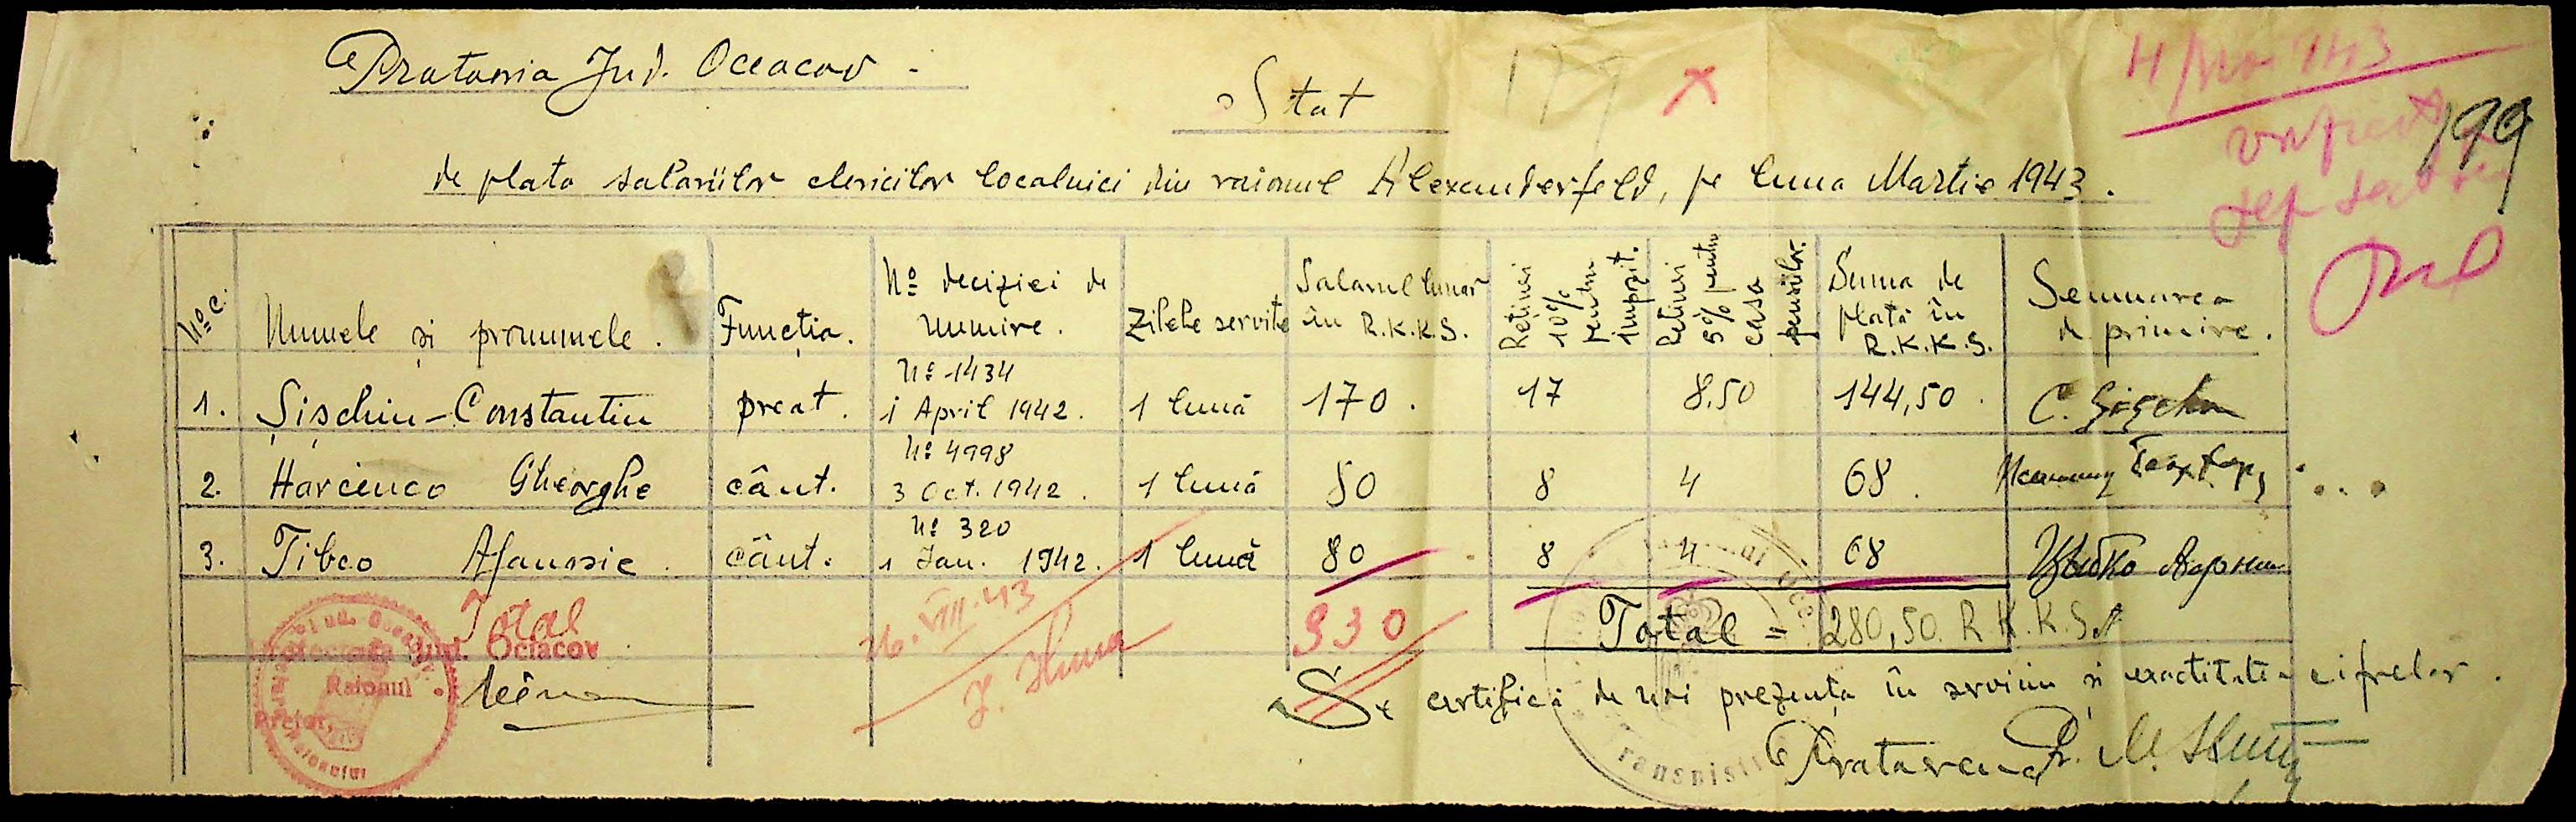 Protoeria Jud. Oceacov -
Stat
de plata salariilor clericilor localnici din raionul Alexanderfeld, pe luna Martie 1943.
199
No c. Numele și pronumele. Funcția. No deciziei de numire. Zilele servite Salarul lunar în R.K.K.S. Rețineri 10% pentru impozit. Rețineri 5% pentru casa pensiilor. Suma de plată în R.K.K.S. Semnarea de primire.
1. Șișchin-Constantin preot. No 1434 1 April 1942. 1 lună 170. 17 8,50 144,50. C.
2. Harcenco Gheorghe cânt. No 4998 3 Oct. 1942. 1 lună 80 8 4 68.
3. Țibco Afanasie. cânt. No 320 1 Ian. 1942. 1 lună 80 8 4 68 Цыбко
Total 330
Total = 280,50. R.K.K.S.
Jud. Ociacov
Raionul
Pretor,
26.VIII.43
Se certifică de noi prezența în serviciu și exactitatea cifrelor.